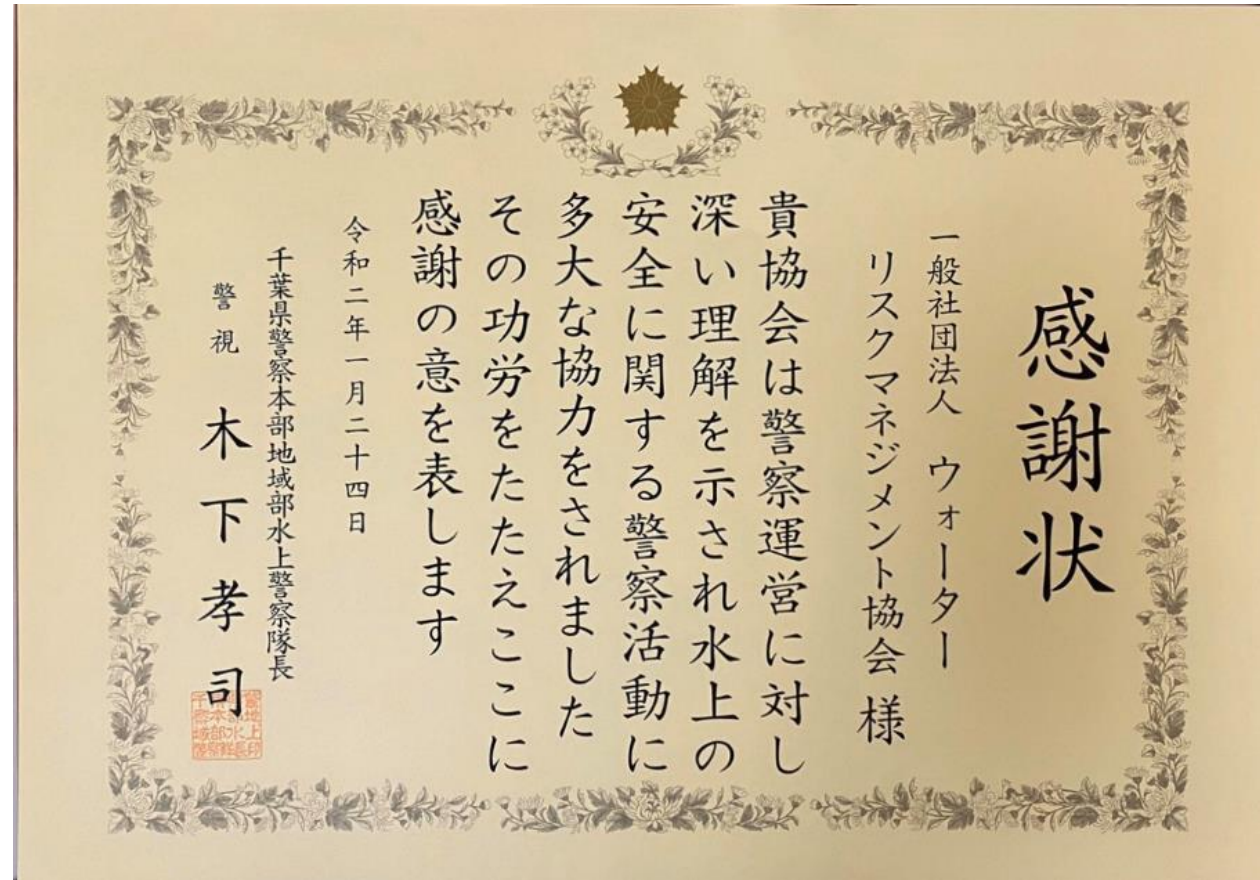 感謝状
一般社団法人 ウォーター
リスクマネジメント協会 様
貴協会は警察運営に対し
深い理解を示され水上の
安全に関する警察活動に
多大な協力をされました
その功労をたたえここに
感謝の意を表します
令和二年一月二十四日
千葉県警察本部地域部水上警察隊長
警視 木下孝司